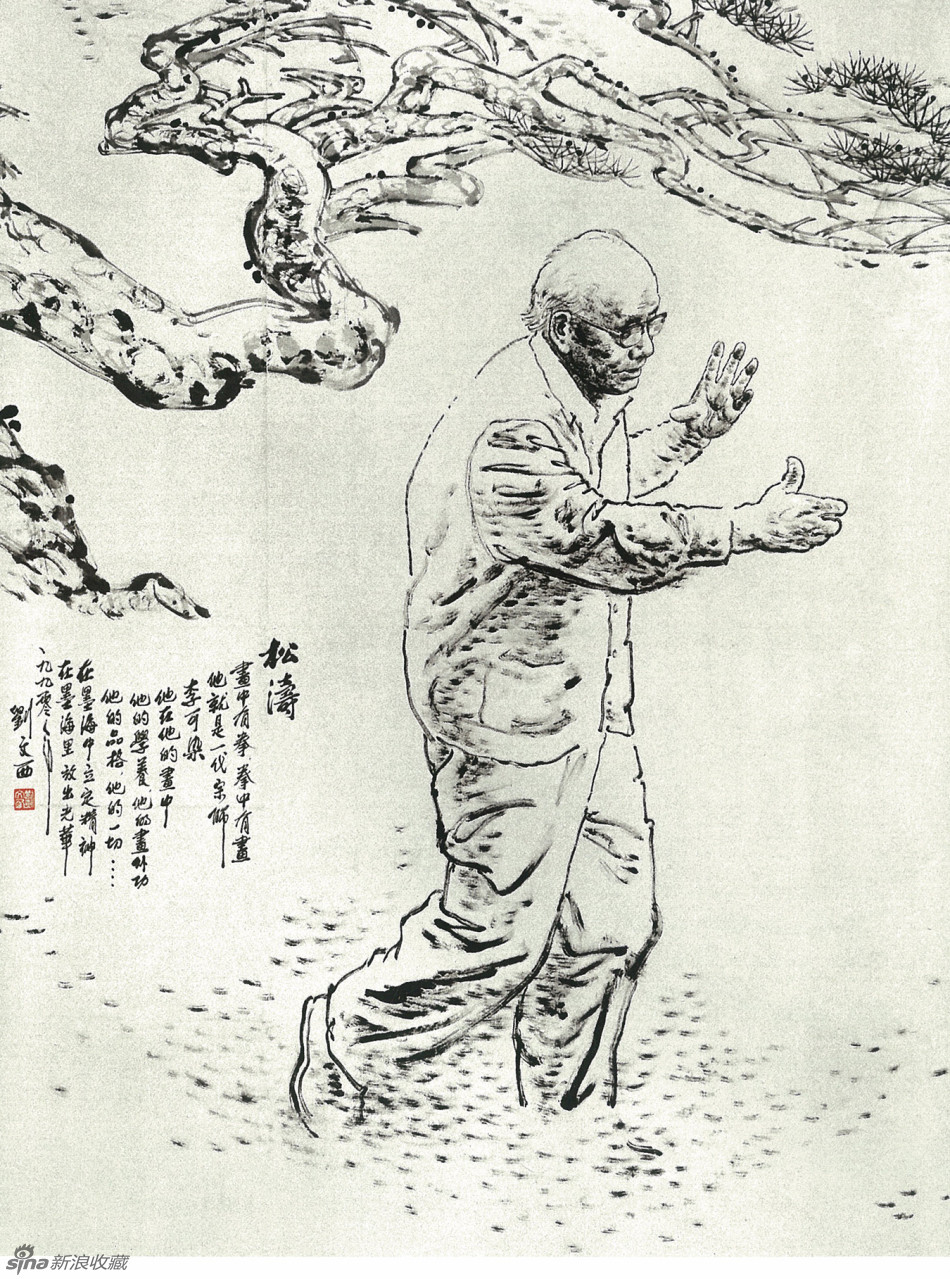 松濤
畫中有拳,拳中有畫
他就是一代宗師
李可染
他在他的畫中
他的學養、他的畫外功
他的品格、他的一切……
在墨海中立定精神
在墨海里放出光華
一九九零年
劉文西
sina新浪收藏